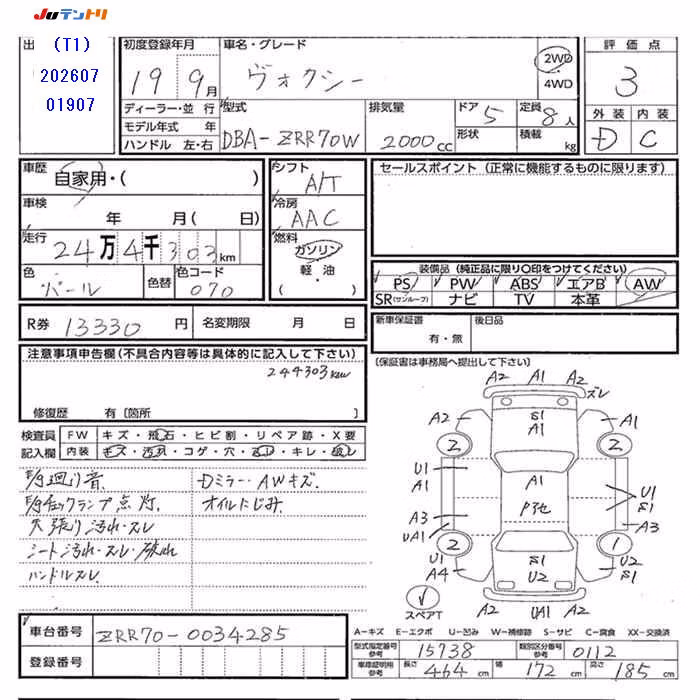 JUテントリ
出 (T1)
202607
01907
初度登録年月
19 9月
ディーラー・並行
モデル年式 年
ハンドル 左・右
車名・グレード
ヴォクシー
2WD
4WD
型式
DBA-ZRR70W
排気量
2000cc
ドア 5
形状
定員 8人
積載 kg
評価点
3
外装 内装
D C
車歴
自家用・( )
車検
年 月( 日)
走行
24万4千303km
色
パール
色替
色コード
070
シフト
A/T
冷房
AAC
燃料
ガソリン
軽・油
( )
セールスポイント (正常に機能するものに限ります)
装備品 (純正品に限り○印をつけてください)
PS PW ABS エアB AW
SR(サンルーフ) ナビ TV 本革
R券 13330円
名変期限 月 日
新車保証書
有・無
後日品
(保証書は事務局へ提出して下さい)
注意事項申告欄(不具合内容等は具体的に記入して下さい)
244303km
修復歴 有〔箇所 〕
検査員
記入欄
FW キズ・飛石・ヒビ割・リペア跡・X要
内装 キズ・汚れ・コゲ・穴・スレ・キレ・破レ
E/g廻り音
E/gチェックランプ点灯
天張り汚れ・スレ
シート汚れ・スレ・破れ
ハンドルスレ
Dミラー・AWキズ
オイルにじみ
A2 A1 A2
ズレ
A2 S1 A1
A1
2 2
U1 A1
A1 U1
P3他 S1
A3 A3
UA1
2 1
U1 S1 U2
A4 U2 S1
スペアT
A2 UA1 A2
車台番号 ZRR70-0034285
登録番号
A-キズ E-エクボ U-凹み W-補修跡 S-サビ C-腐食 XX-交換済
型式指定番号 参考 15738
類別区分番号 参考 0112
車庫証明用 参考 長さ 464cm 幅 172cm 高さ 185cm